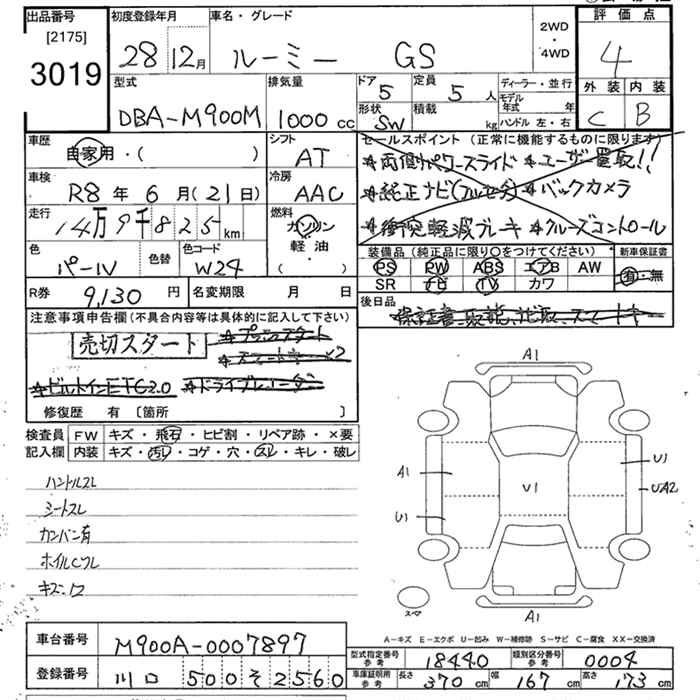 出品番号 初度登録年月 車名・グレード 2WD・4WD 評価点
[2175]
3019 28 12月 ルーミー GS 4
型式 排気量 ドア 定員 ディーラー・並行 外装 内装
DBA-M900M 1000cc 5 5人 モデル年式 年 C B
形状 SW 積載 kg ハンドル 左・右
車歴 自家用・( ) シフト AT セールスポイント(正常に機能するものに限ります)
*両側パワースライド *ユーザー買取!!
車検 R8年6月(21日) 冷房 AAC *純正ナビ(フルセグ) *バックカメラ
走行 14万9千825km 燃料 ガソリン・軽油・( ) *衝突軽減ブレーキ *クルーズコントロール
色 パール 色替 色コード W24 装備品(純正品に限り○をつけてください) 新車保証書
PS PW ABS エアB AW 有・無
SR ナビ TV カワ
R券 9,130円 名変期限 月 日 後日品
保証書、取説、ナビ取、スマートキー
注意事項申告欄(不具合内容等は具体的に記入して下さい)
売切スタート *プッシュスタート
*スマートキー×2
*ビルトインETC2.0 *ドライブレコーダー
修復歴 有 [箇所 ]
検査員 FW キズ・飛石・ヒビ割・リペア跡・×要
記入欄 内装 キズ・汚レ・コゲ・穴・スレ・キレ・破レ
ハンドルスレ
シートスレ
カンバン有
ホイルCフレ
A1
A1 U1
U1 UA2
U1
スペア A1
A-キズ E-エクボ U-凹み W-補修跡 S-サビ C-腐食 XX-交換済
車台番号 M900A-0007897 型式指定番号 参考 18440 類別区分番号 参考 0004
登録番号 川口 500 そ 2560 車庫証明用 参考 長さ 370cm 幅 167cm 高さ 173cm